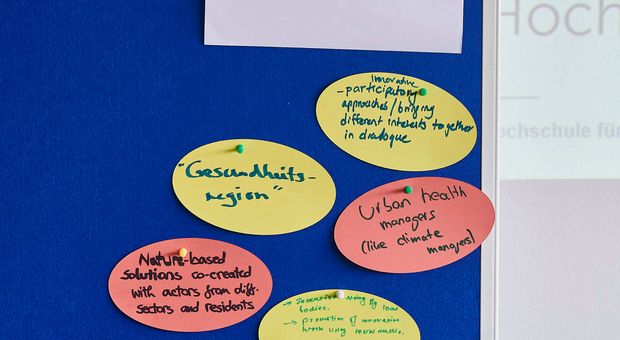 Innovative
- participatory
approaches/bringing
different interests together
in dialogue
"Gesundheits-
region"
Urban health
managers
(like climate
managers)
Nature-based
solutions co-created
with actors from diff.
sectors and residents
→ Incentive by local
bodies.
→ promotion of innovative
work using social media.
Hoch
ochschule für